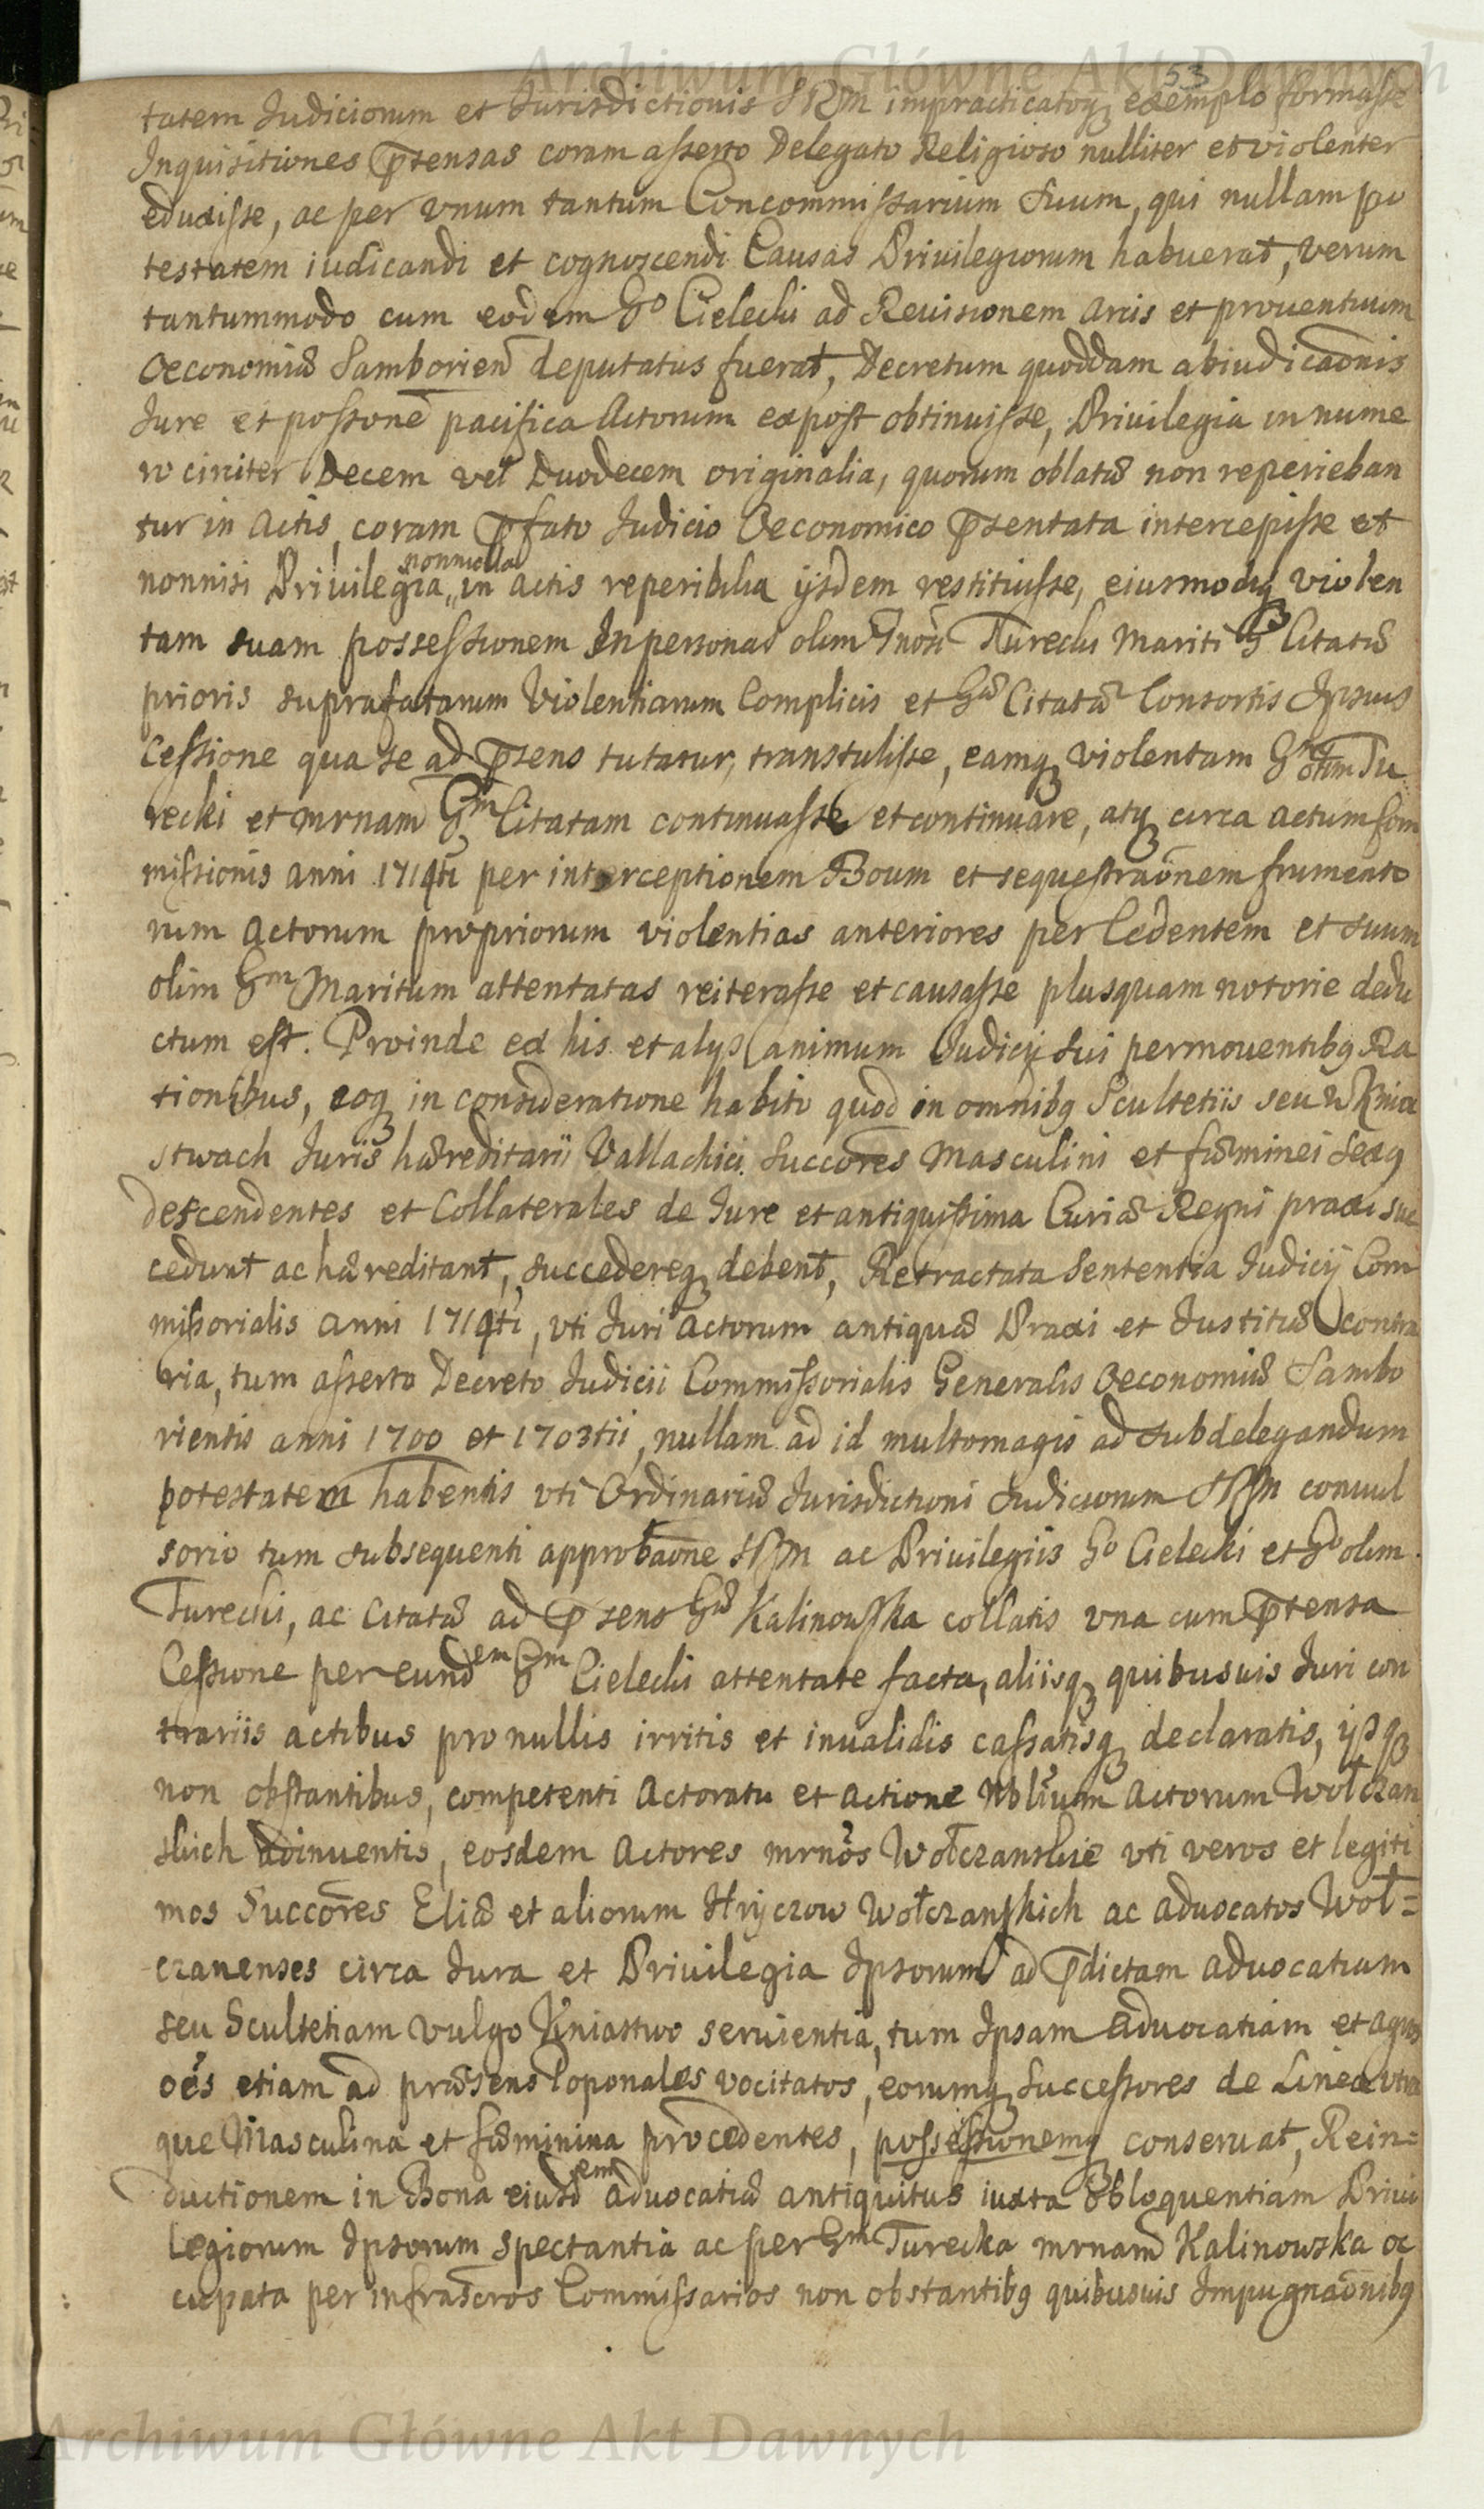 Archiwum Główne Akt Dawnych
53
tatem Judiciorum et Jurisdictionis SRM impracticatoq; exemplo formasse
Inquisitiones p̄tensas coram asserto Delegato Religioso nulliter et violenter
eduxisse, ac per vnum tantum Concommissarium Suum, qui nullam po
testatem iudicandi et cognoscendi Causas Priuilegiorum habuerat, verum
tantummodo cum eodem Gō Cielecki ad Reuisionem Arcis et prouentuum
Oeconomiæ Samborien̄ deputatus fuerat, Decretum quoddam abiudicaōnis
Jure et possone̅ pacifica Actorum expost obtinuisse, Priuilegia in nume
ro circiter Decem vel Duodecem originalia, quorum oblatæ non reperieban
tur in Actis, coram p̄fato Judicio Oeconomico p̄sentata intercepisse et
nonnisi Priuilegia nonnulla in actis reperibilia ijsdem restituisse, eiusmodiq; violen
tam suam possessionem In personas olim Gnosi Turecki Mariti Gæ Citatæ
prioris suprafatarum Violentiarum Complicis et Gæ Citatæ Consortis Ipsius
Cessione qua se ad p̄sens tutatur, transtulisse, eamq; violentam Gm olim Tu
recki et mrnam Gm Citatam continuasse et continuare, atq; circa actum Com
missionis anni 1714ti per interceptionem Boum et sequestraōnem frumento
rum Actorum propriorum violentias anteriores per Cedentem et suum
olim Gm Maritum attentatas reiterasse et causasse plusquam notorie dedu
ctum est. Proinde ex his et alys animum Judicij sui permouentibq Ra
tionibus, eoq; in consideratione habito quod in omnibq Scultetiis seu w Knia
stwach Juris hæreditarii Vallachici Succōres Masculini et fœminei Sexq
descendentes et Collaterales de Jure et antiquissima Curiæ Regni praxi suc
cedunt ac hæreditant, succedereq; debent, Retractata Sententia Judicij Com
missorialis anni 1714ti, vti Juri Actorum antiquæ Praxi et Justitiæ contra
ria, tum asserto Decreto Judicii Commissorialis Generalis Oeconomiæ Sambo
riensis anni 1700 et 1703tii, nullam ad id multomagis ad subdelegandum
potestatem habentis vti Ordinariæ Jurisdictioni Judiciorum SRM conuul
sorio tum subsequenti approbaōne SRM ac Priuilegiis Go Cielecki et Go olim
Turecki, ac Citatæ ad p̄sens Gæ Kalinowska collatis vna cum p̄tensa
Cessione per eundem Gm Cielecki attentate facta, aliisq; quibusuis Juri con
trariis actibus pro nullis irritis et inualidis cassatisq; declaratis, ijsq;
non obstantibus, competenti Actoratu et actione Nblium Actorum Wołczan
skich adinuentis, eosdem Actores mrnos Wołczanskie vti veros et legiti
mos Succōres Eliæ et aliorum Hryczow Wołczanskich ac aduocatos Woł=
czanenses circa Jura et Priuilegia Ipsorum ad p̄dictam aduocatiam
seu Scultetiam vulgo Kniastwo seruientia, tum Ipsam Aduocatiam et agros
oēs etiam ad præsens Poponales vocitatos, eorumq; Successores de Linea vtra
que Masculina et fœminina procedentes, possessionemq; conseruat, Rein=
ductionem in Bona eiusdem aduocatiæ antiquitus iuxta Obloquentiam Priui
legiorum Ipsorum spectantia ac per Gm Turecka mrnam Kalinowska oc
cupata per infrascros Commissarios non obstantibq quibusuis Impugnaōnibq
Archiwum Główne Akt Dawnych